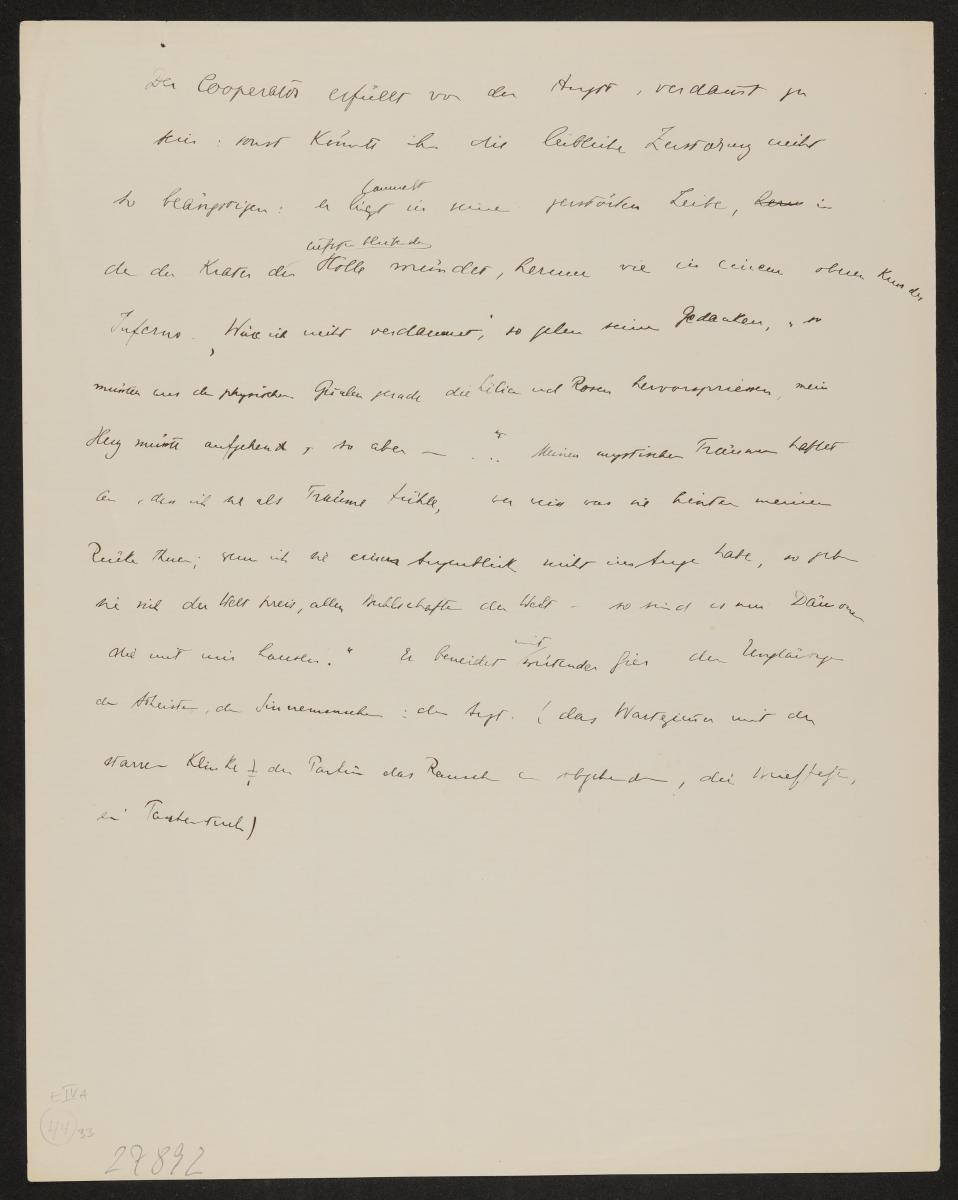 Der Cooperator erfüllt von der Angst, verdammt zu
sein: sonst könnte ihn die leibliche Zerstörung nicht
so beängstigen: er liegt in seinem zerstörten Leibe, in
jammert
den der Krater der Hölle mündet, herum wie in einem obern Kreis des
Inferno. „Wäre ich nicht verdammt", so gehen seine Gedanken, „so
müssten aus den physischen Qualen gerade die Lilien und Rosen hervorspriessen, mein
Herz müsste aufgehend, so aber — . . . Meinen mystischen Träumen haftet
an, dass ich sie als Träume fühle, wer weiss was sie hinter meinem
Rücken thuen; wenn ich sie einen Augenblick nicht im Auge habe, so geben
sie sich der Welt preis, allen Buhlschaften der Welt – so sind es nur Dämonen
die mit mir hausen." Er beneidet mit wütender Gier den Ungläubigen
den Atheisten, den Sinnenmenschen: den Arzt. (das Wartezimmer mit der
starren Klinke der Patien das Rausch
ein Taschentuch)
E IV A
44 33
27892